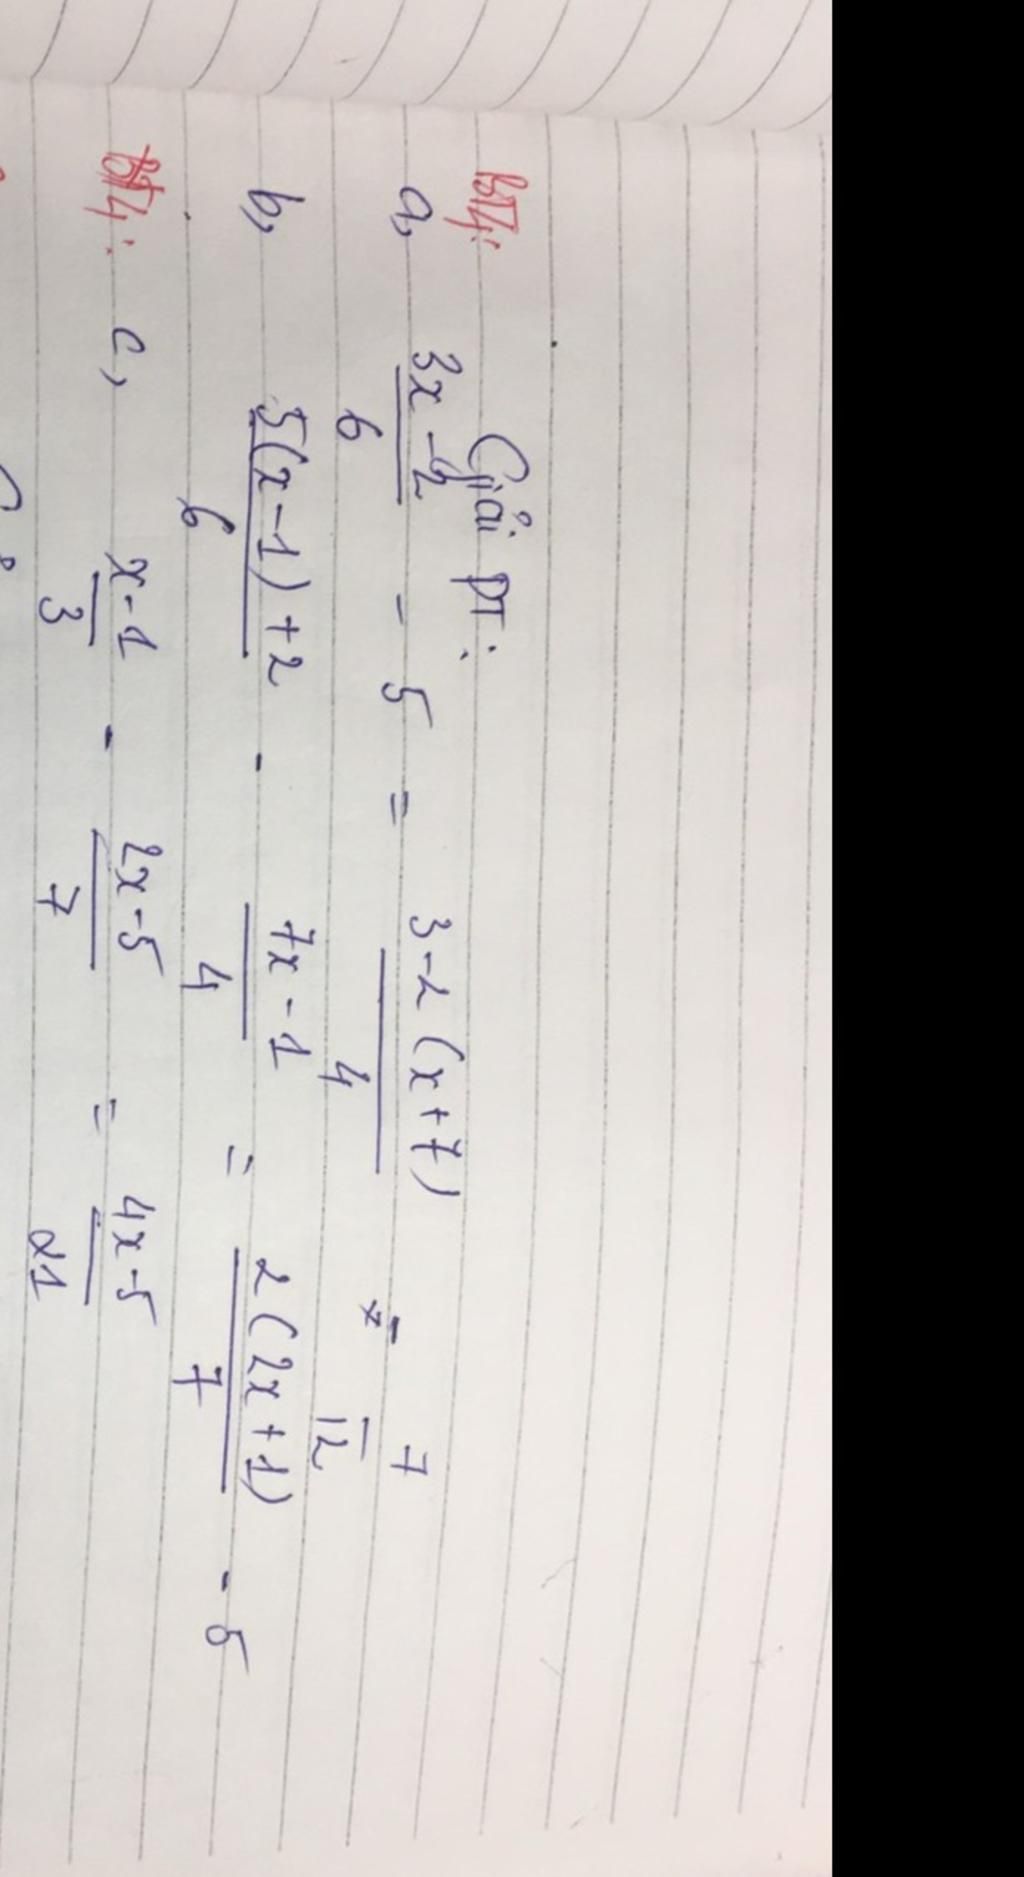 BT4: Giải PT:
a, 3x-2/6 - 5 = 3-2(x+7)/4 - 7/12
b, 5(x-1)+2/6 - 7x-1/4 = 2(2x+1)/7 - 5
BT4: c, x-1/3 - 2x-5/7 = 4x-5/21